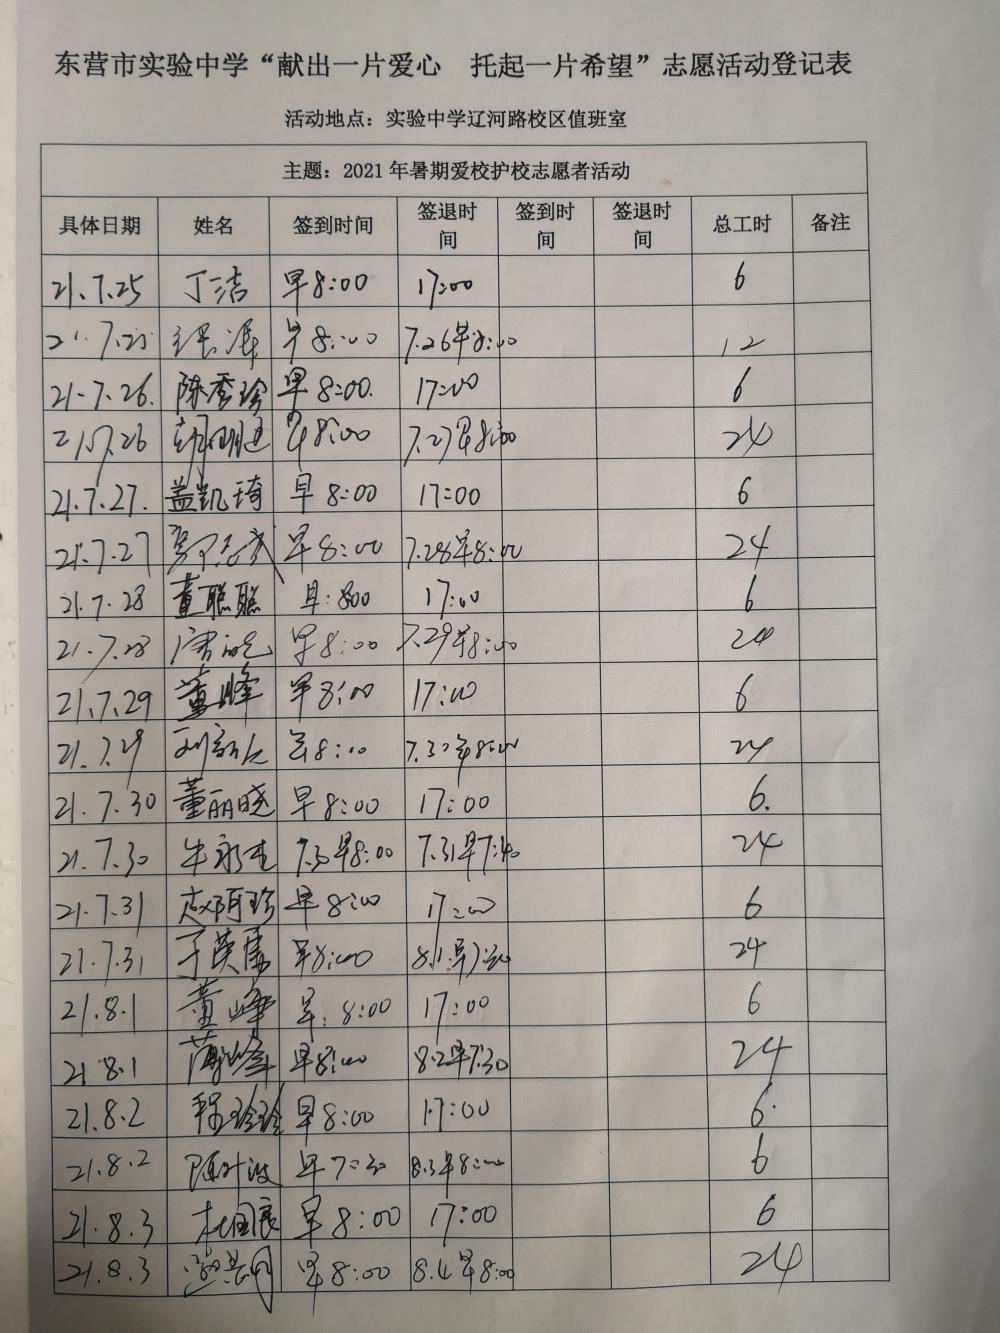 东营市实验中学“献出一片爱心 托起一片希望”志愿活动登记表
活动地点：实验中学辽河路校区值班室
主题：2021年暑期爱校护校志愿者活动
具体日期 姓名 签到时间 签退时间 签到时间 签退时间 总工时 备注
21.7.25 丁洁 早8:00 17:00 6
21.7.25 早8:00 7.26早8:00 12
21.7.26. 陈秀珍 早8:00. 17:00 6
21.7.26 早8:00 7.27早8:00 24
21.7.27. 盖凯琦 早8:00 17:00 6
21.7.27 早8:00 7.28早8:00 24
21.7.28 董聪聪 早:800 17:00 6
21.7.28 早8:00 7.29早8:00 24
21.7.29 董峰 早8:00 17:00 6
21.7.29 早8:00 7.30早8:00 24
21.7.30 董丽晓 早8:00 17:00 6.
21.7.30 牛永生 7.30早8:00 7.31早7:40 24
21.7.31 赵阿珍 早8:00 17:00 6
21.7.31 早8:00 24
21.8.1 董峰 早:8:00 17:00 6
21 8.1 薄峰 早8:00 8.2早7:30 24
21.8.2 程玲玲 早8:00 17:00 6.
21.8.2 陈叶波 早7:30 8.3早8:00 6
21.8.3 杜国展 早8:00 17:00 6
21.8.3 早8:00 8.4早8:00 24